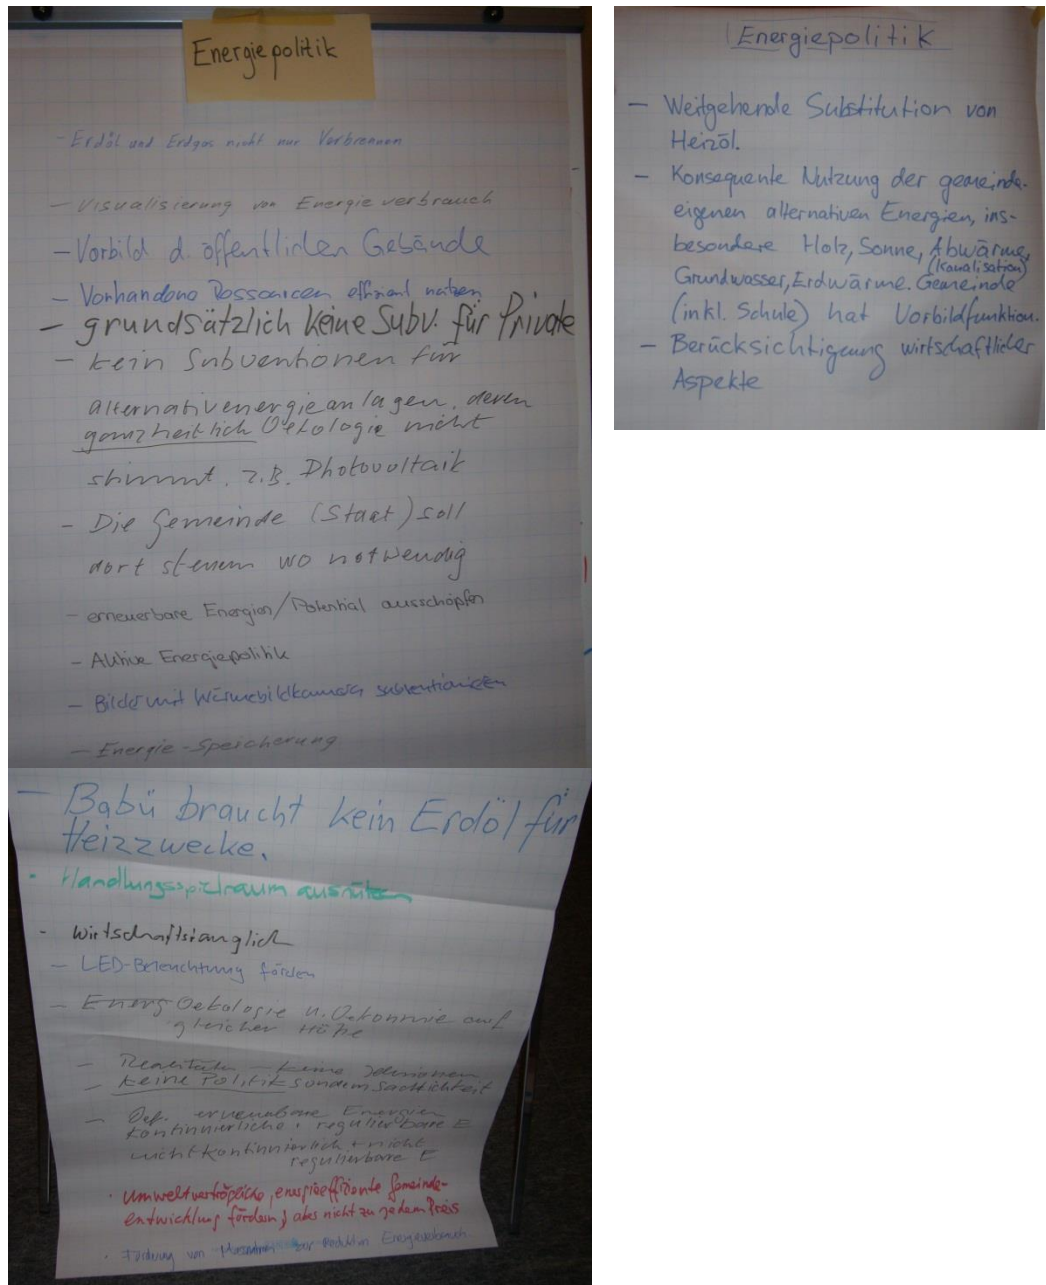 Energiepolitik
- Erdöl und Erdgas nicht nur Verbrennen
- Visualisierung von Energieverbrauch
- Vorbild d. öffentlichen Gebäude
- Vorhandene Ressourcen effizient nutzen
- grundsätzlich keine Subv. für Private
- kein Subventionen für
alternativenergieanlagen, deren
ganzheitlich Oekologie nicht
stimmt. z.B. Photovoltaik
- Die Gemeinde (Staat) soll
dort steuern wo notwendig
- erneuerbare Energien/Potential ausschöpfen
- Aktive Energiepolitik
- Bilder mit Wärmebildkamera subventionieren
- Energie-Speicherung
- Babü braucht kein Erdöl für
Heizzwecke.
· Handlungsspielraum ausnützen
- wirtschaftsfanglich
- LED-Beleuchtung fördern
- Energ Oekologie u. Oekonomie auf
gleicher Höhe
- Realitäten - keine
- keine Politik sondern Sachlichkeit
- Def. erneuerbare Energien
kontinuierliche + regulierbare E
nicht kontinuierlich + nicht
regulierbare E
· umweltverträgliche, energieeffiziente Gemeinde-
entwicklung fördern, aber nicht zu jedem Preis
· Förderung von zur Reduktion Energieverbrauch
Energiepolitik
- Weitgehende Substitution von
Heizöl.
- Konsequente Nutzung der gemeinde-
eigenen alternativen Energien, ins-
besondere Holz, Sonne, Abwärme,
(Kanalisation)
Grundwasser, Erdwärme. Gemeinde
(inkl. Schule) hat Vorbildfunktion.
- Berücksichtigung wirtschaftlicher
Aspekte